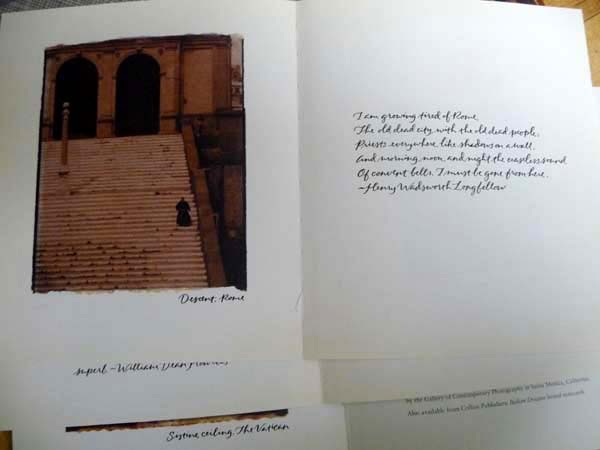 Descent, Rome
I am growing tired of Rome,
The old dead city, with the old dead people,
Priests everywhere, like shadows on a wall,
And morning, noon, and night the ceaseless sound
Of convent bells. I must be gone from here.
~Henry Wadsworth Longfellow
superb ~William Dean Howells
Sistine ceiling, The Vatican
by the Gallery of Contemporary Photography in Santa Monica, California.
Also available from Collins Publishers: Italian Dreams boxed notecards.